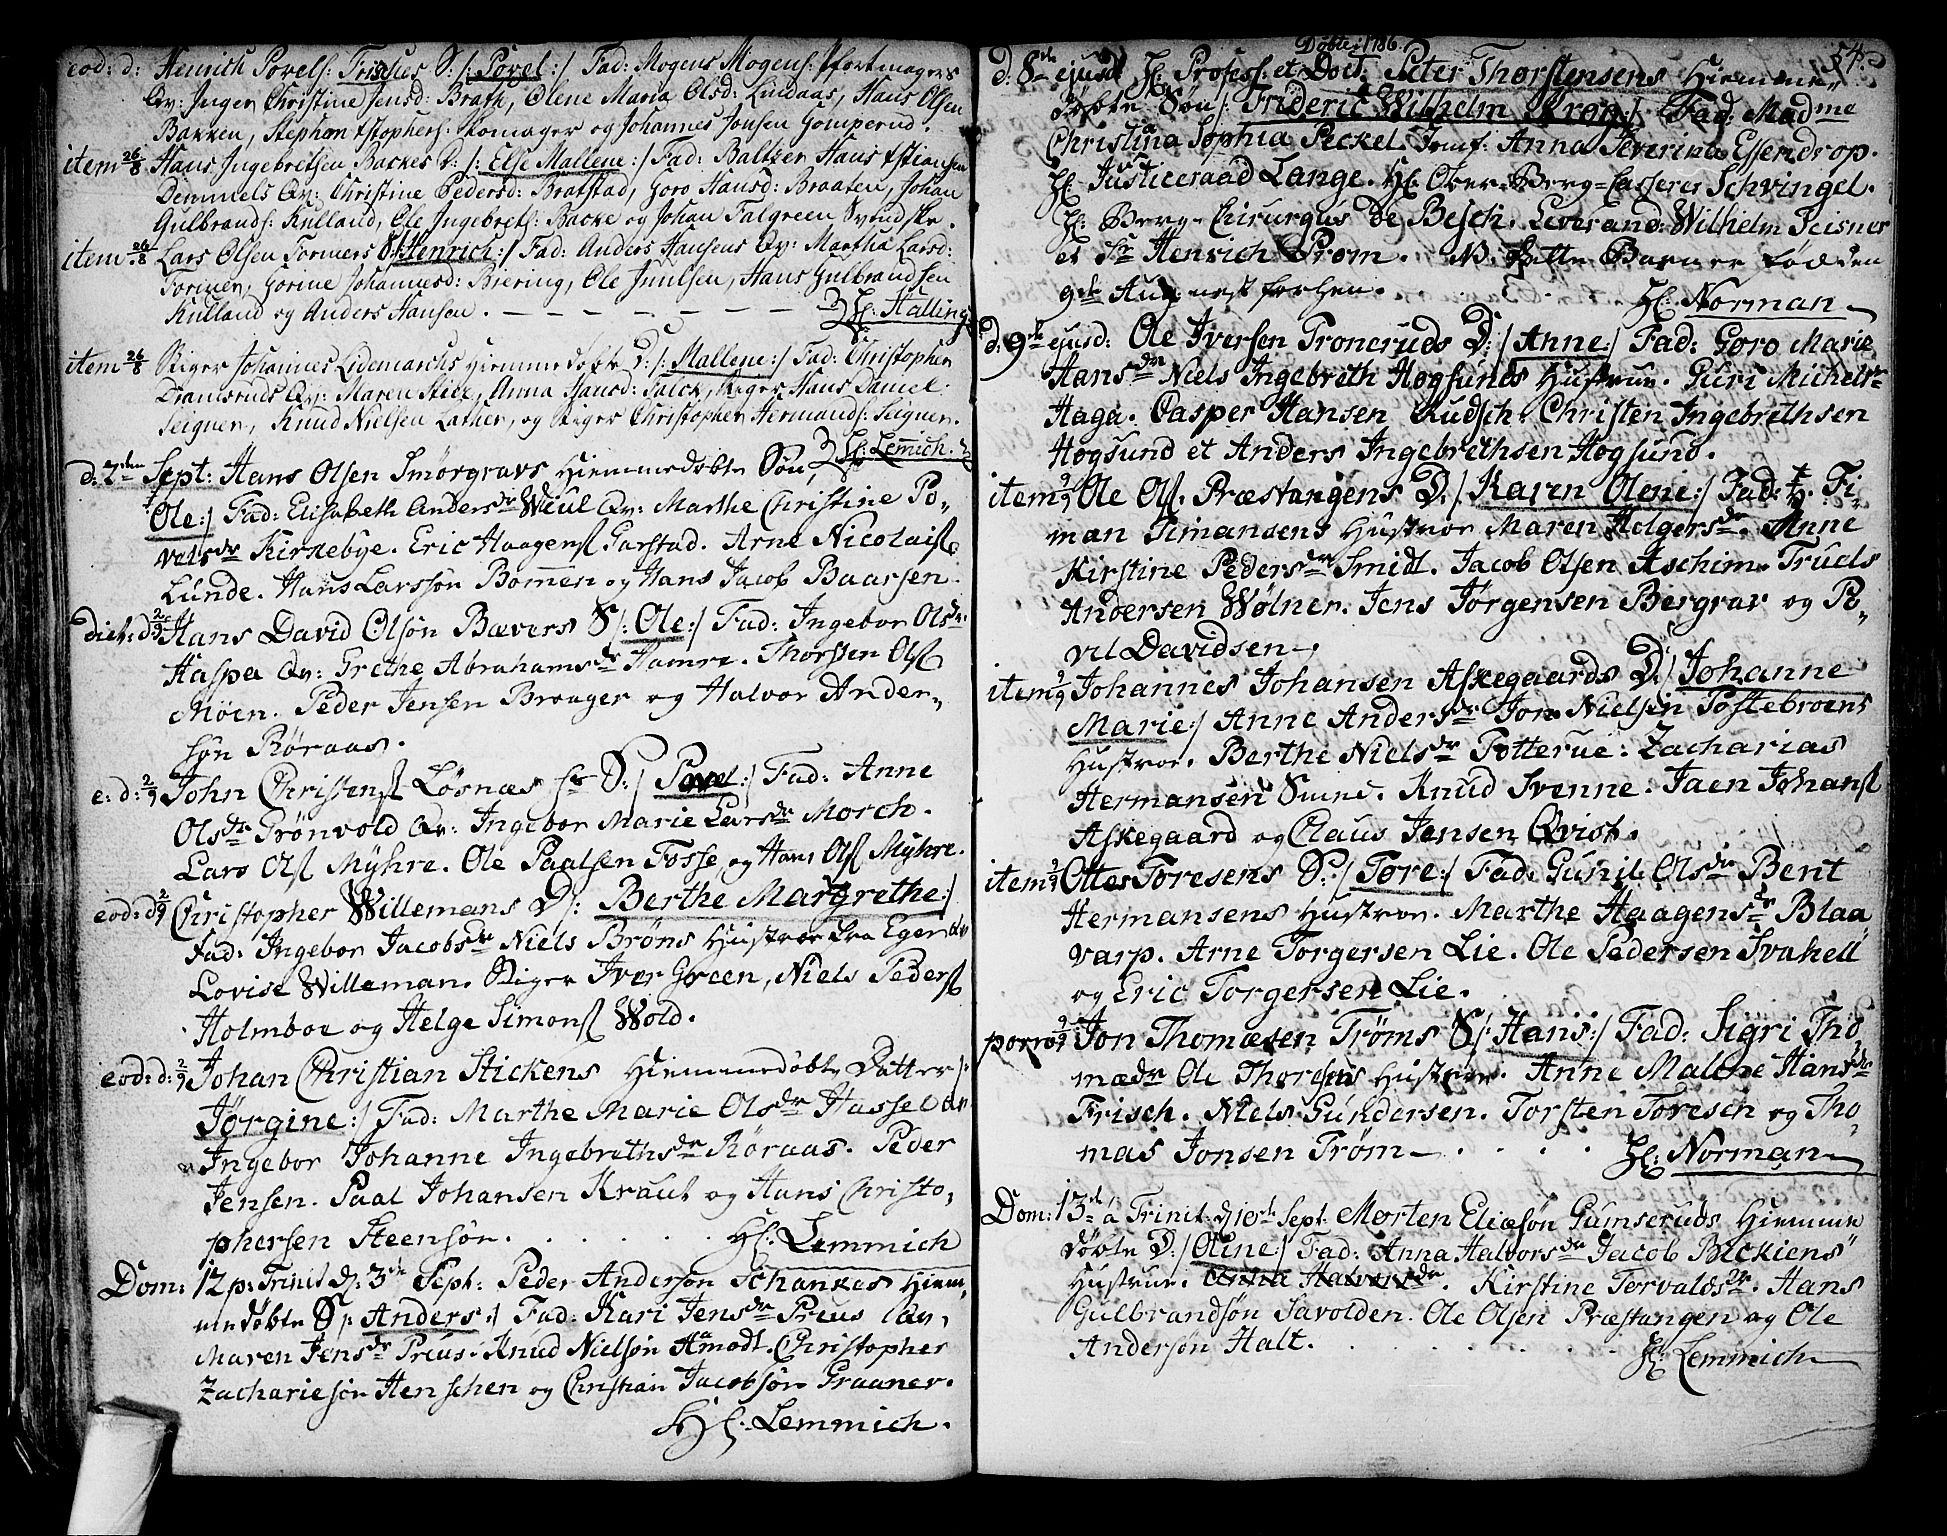 eod: d: Henrich Povels: Frisches S:/: Povel:/ Fad: Mogens Mogens: Pfortmagers
Qv: Inger Christine Jensd: Brath, Olene Maria Olsd: Lindaas, Hans Olsen
Bakken, Stephen Xstophers: Skomager og Johannes Jonsen Gomperud.
item 26/8 Hans Ingebretsen Backes D:/: Else Mallene:/ Fad: Baltzer Hans Xstiansen
Demmels Qv: Christine Pedersd: Brafstad, Goro Hansd: Braaten, Johan
Gulbrands: Kulland, Ole Ingebrets: Backe og Johan Falgreen Svendske.
item 26/8 Lars Olsen Tormers S:/ Henrich:/ Fad: Anders Hansens Qv: Martha Larsd:
Tormer, Gorine Johannesd: Biering, Ole Juulsen, Hans Gulbrandsen
Kulland og Anders Hansen. Hr: Halling
item 26/8 Stiger Johannes Lidemarchs hiemmedøbt D:/: Mallene:/ Fad: Christopher
Dramsruds Qv: Maren Stilz, Anna Hansd: Falck, Stiger Hans Daniel
Seigner, Knud Nielsen Lather, og Stiger Christopher Hermands: Seigner.
Hr: Lemich.
d: 2den Sept: Hans Olsen Smørgravs hiemmedøbte Søn
Ole:/ Fad: Elisabeth Andersdr Wiul Qv: Marthe Christine Po-
velsdr Kirkebye. Eric Haagens Garstad. Arne Nicolais
Lunde. Hans Larssøn Bommen og Hans Jacob Baarsen.
dict: d 2/9 Hans David Olsøn Bævers S/: Ole:/ Fad: Ingebor Olsdr
Haspa Qv: Grethe Abrahamsdr Hamre. Thorsten Ols
Möen. Peder Jensen Braager og Halvor Ander-
søn Röraas.
e: d: 2/9 John Christens Løsnæs S:/ Povel:/ Fad: Anne
Olsdr Grönvold Qv: Ingebor Marie Larsdr Morch.
Lars Ols Myhre. Ole Paalsen Fosse, og Hans Ols Myhre.
eod: d 2/9 Christopher Willemans D/: Berthe Margrethe:/
Fad: Ingebor Jacobsdr Niels Brøns Hustroe fra Eger
Lovise Willeman. Stiger Iver Green, Niels Peders
Holmboe og Helge Simons Wold.
eod: d: 2/9 Johan Christian Stickens Hiemmedøbte Datter/:
Jörgine:/ Fad: Marthe Marie Olsdr Hassel Qv
Ingebor Johanne Ingebrethsdr Röraas. Peder
Jensen. Paal Johansen Kraut og Hans Christo-
phersen Steensør. Hr: Lemmich
Dom: 12 p: Trinit d: 3de Sept: Peder Andersøn Schankes Hiem-
medøbte S/: Anders:/ Fad: Kari Jensdr Preus Qv,
Maren Jensdr Preus. Knud Nielsøn Aamodt. Christopher
Zachariesøn Henschen og Christian Jacobsøn Graaner.
Hr: Lemmich.
Döbte 1786. 54
d. 8de ejusd Hr. Profess: et Doct. Peter Thorstensens Hiemme-
døbte Søn/: Frideric Wilhelm Krog:/ Fad: Madme
Christina Sophia Peckel Jomf: Anna Severina Essendrop.
Hr. Justiceraad Lange. Hr. Ober-Berg-Casserer Schvingel.
Hr. Berg-Chirurgus de Besch. Leverand: Wilhelm Peisner
et Sr Henrich Prom. NB. Dette Barn er född den
9de Aug. nest forhen. Hr: Norman
d. 9de ejusd. Ole Iversen Troncruds D:/ Anne:/ Fad: Goro Marie
Hansdr Niels Ingebreth Hogsunds Hustrue. Guri Michelsdr
Haga. Casper Hansen Kudsch. Christen Ingebrethsen
Hogsund et Anders Ingebrethsen Hogsund.
item 9/9 Ole Ols. Præstangens D:/ Karen Olene:/ Fad: Fi-
man Simansens Hustroe Maren Helgersdr. Anne
Kirstine Pedersdr Smidt. Jacob Olsen Aschim. Truels
Andersen Wölner. Jens Jörgensen Bergrav og Po-
vel Davidsen.
item 9/9 Johannes Johansen Askegaards D:/ Johanne
Marie:/ Anne Andersdr Jon Nielsen Postebroens
Hustroe. Berthe Nielsdr Potterue: Zacharias
Hermansen Svene. Knud Svenne: Jaen Johans
Askegaard og Claus Jensen Qvist.
item 9/9 Ottes Toresens S:/ Tore:/ Fad: Gunil Olsdr Bent
Hermansens Hustroe. Marthe Haagensdr Blaa-
varp. Arne Torgersen Lie. Ole Pedersen Svahell
og Eric Torgersen Lie.
porro 9/9 Jon Thomæsen Tröms S/: Hans:/ Fad: Sigri Tho-
mædr Ole Thoresens Hustroe. Anne Malene Hansdr
Frisch. Niels Gundersen. Torsten Toresen og Tho-
mas Jonsen Tröm. Hr: Norman
Dom: 13de a Trinit. d. 10de Sept. Morten Eliæsøn Gumseruds Hiemme
döbte D:/ Oline:/ Fad: Anna Halvorsdr Jacob Beckiens
Hustrue. Anna Halvorsdr. Kirstine Torvaldsdr. Hans
Gulbrandsøn Savolden. Ole Olsen Præstangen og Ole
Andersøn Halt. Hr: Lemmich